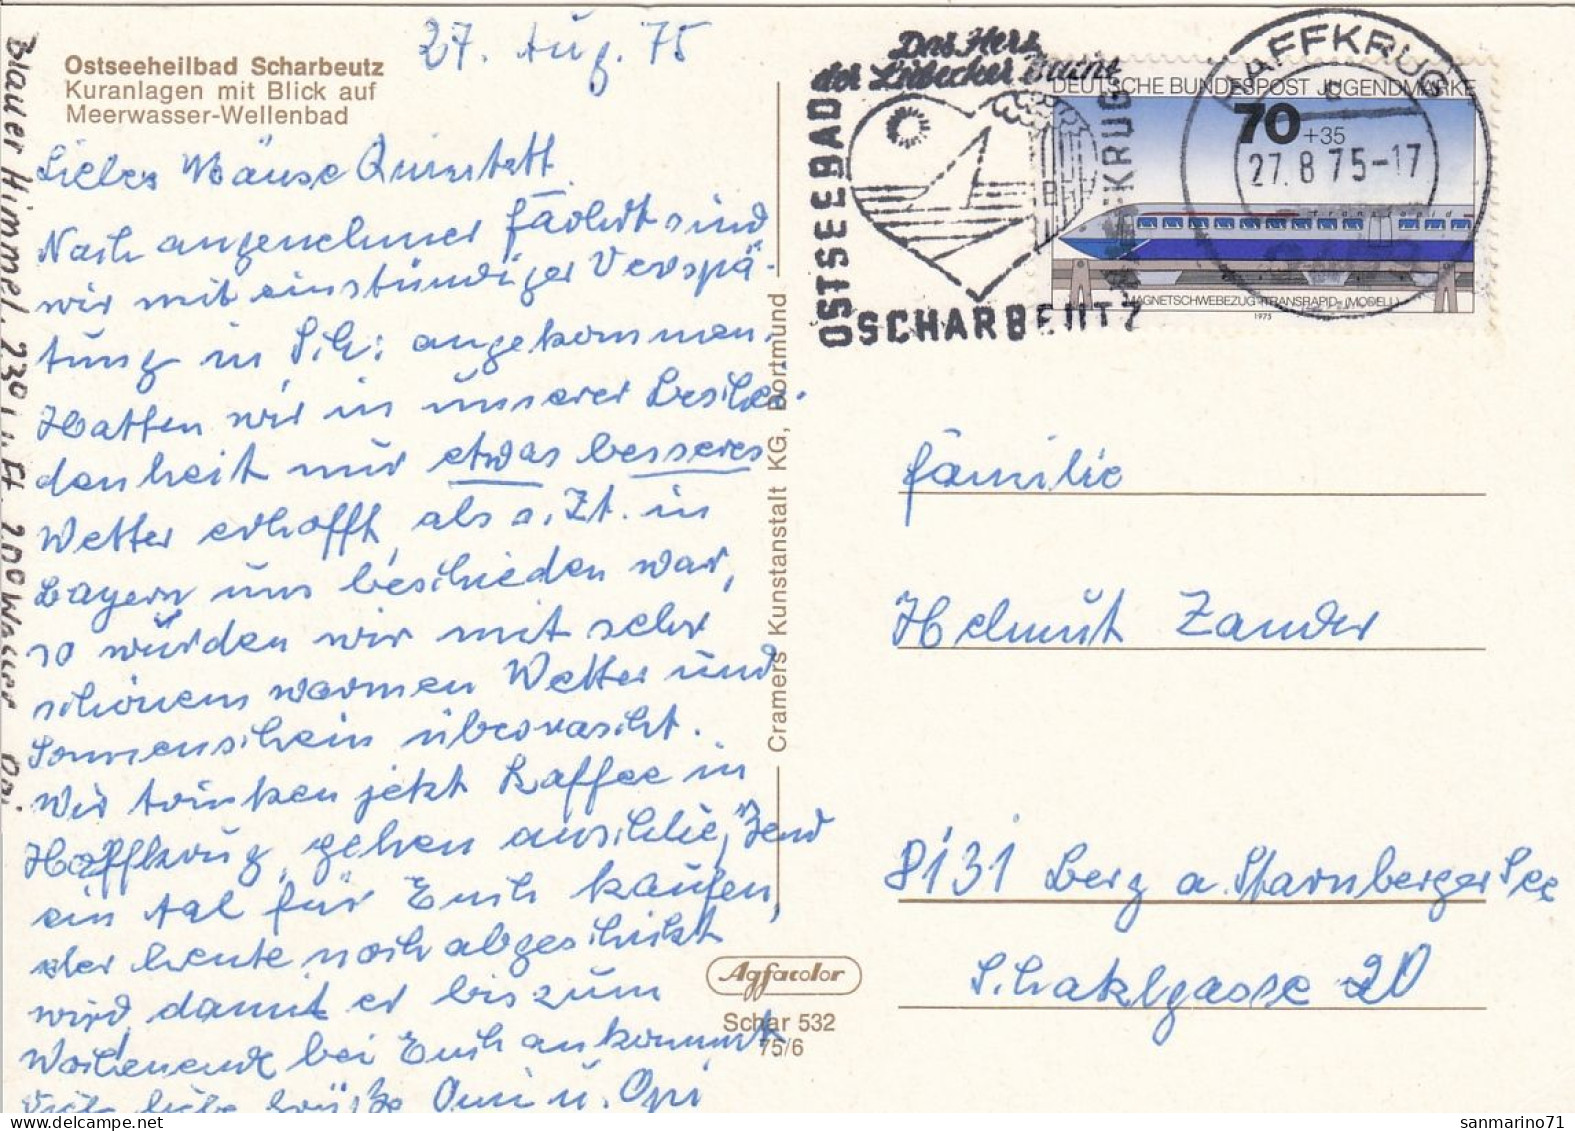 27. Aug. 75
Ostseeheilbad Scharbeutz
Kuranlagen mit Blick auf
Meerwasser-Wellenbad
Liebes Mäuse Quintett
Nach angenehmer Fahrt sind
wir mit einstündiger Verspä-
tung in Sch: angekommen.
Hatten wir in unserer Beschei-
denheit nur etwas besseres
Wetter erhofft, als z. Zt. in
Bayern uns beschieden war,
so wurden wir mit sehr
schönem warmen Wetter und
Sonnenschein überrascht.
Wir trinken jetzt Kaffee in
Haffkrug, gehen anschließend
ein Aal für Euch kaufen,
der heute noch abgeschickt
wird, damit er bis zum
Wochenende bei Euch ankommt.
Viele liebe Grüße Omi u. Opi
Blauer Himmel, 23° i. 20° Wasser Opi
Cramers Kunstanstalt KG, Dortmund
Agfacolor
Schar 532
75/6
Das Herz
der Lübecker Bucht
OSTSEEBAD
HAFFKRUG
SCHARBEUTZ
HAFFKRUG
27.8 75-17
DEUTSCHE BUNDESPOST JUGENDMARKE
70+35
transrapid
MAGNETSCHWEBEZUG »TRANSRAPID« (MODELL)
1975
Familie
Helmut Zander
8131 Berg a. Starnberger See
Schatzlgasse 20
sanmarino71